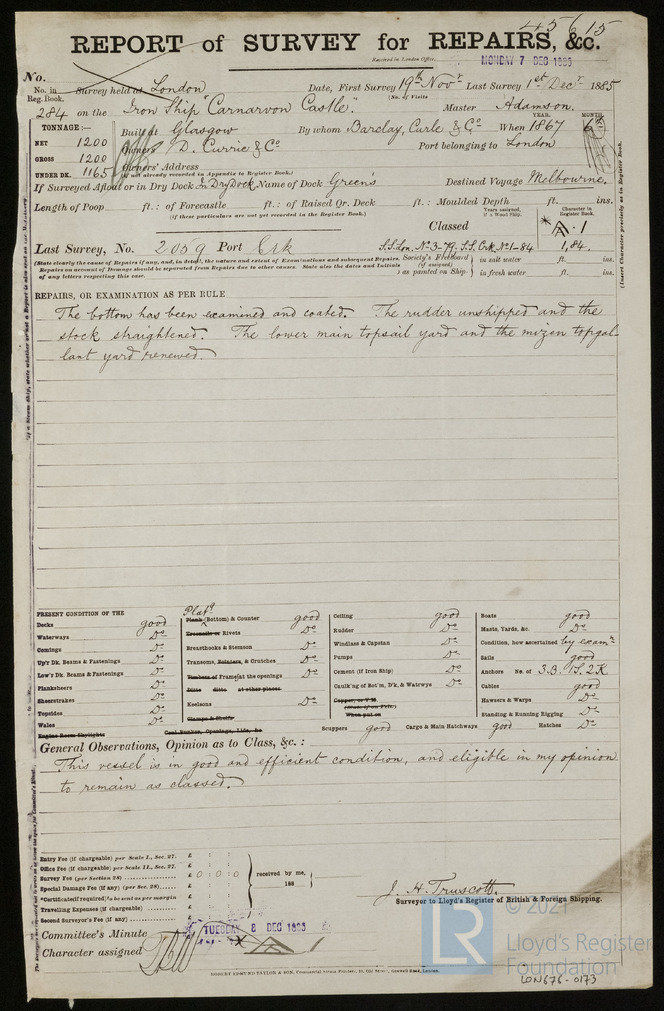 45615
REPORT of SURVEY for REPAIRS, &c.
Received in London Office, MONDAY 7 DEC 1885
No.
No. in Reg. Book. Survey held at London Date, First Survey 19th Novr Last Survey 1st Decr 1885
(No. of Visits
284 on the Iron Ship "Carnarvon Castle". Master Adamson.
TONNAGE:—
NET 1200
GROSS 1200
UNDER DK. 1165
YEAR. MONTH.
Built at Glasgow By whom Barclay, Curle & Co When 1867 6th
Owners D. Currie & Co Port belonging to London
Owners' Address
(if not already recorded in Appendix to Register Book.)
If Surveyed Afloat or in Dry Dock In Dry Dock Name of Dock Green's Destined Voyage Melbourne.
Length of Poop ft.: of Forecastle ft.: of Raised Qr. Deck ft.: Moulded Depth ft. ins.
(if these particulars are not yet recorded in the Register Book.)
Classed
Years assigned, if a Wood Ship.
Character in Register Book.
A.1
Last Survey, No. 2059 Port Crk S.S.Lon. No.3-79. S.S. Crk No.1-84 1,84.
(State clearly the cause of Repairs if any, and, in detail, the nature and extent of Examinations and subsequent Repairs.
Repairs on account of Damage should be separated from Repairs due to other causes. State also the dates and Initials
of any letters respecting this case.
Society's Freeboard (if assigned) as painted on Ship
in salt water ft. ins.
in fresh water ft. ins.
(Insert Character precisely as in Register Book.
REPAIRS, OR EXAMINATION AS PER RULE
The bottom has been examined and coated. The rudder unshipped and the
stock straightened. The lower main topsail yard and the mizen topgal-
lant yard renewed.
PRESENT CONDITION OF THE
Decks good
Waterways Do
Comings Do
Up'r Dk. Beams & Fastenings Do
Low'r Dk. Beams & Fastenings Do
Planksheers Do
Sheerstrakes Do
Topsides Do
Wales Do
Engine Room Skylights
Platg
Plank (Bottom) & Counter good
Treenails or Rivets Do
Breasthooks & Stemson Do
Transoms, Pointers, & Crutches Do
Timbers of Frame at the openings Do
Ditto ditto at other places
Keelsons Do
Clamps & Shelfs
Coal Bunker, Openings, Lids, &c.
Ceiling good
Rudder Do
Windlass & Capstan Do
Pumps Do
Cement (if Iron Ship) Do
Caulk'ng of Bot'm, D'k, & Watrwys Do
Copper, or Y.M.
When put on
Scuppers good Cargo & Main Hatchways good Hatches Do
Boats good
Masts, Yards, &c. Do
Condition, how ascertained by examn
Sails good
Anchors No. of 3.B. 1S. 2K
Cables good
Hawsers & Warps Do
Standing & Running Rigging Do
General Observations, Opinion as to Class, &c.:
This vessel is in good and efficient condition, and eligible in my opinion
to remain as classed.
Entry Fee (if chargeable) per Scale I., Sec. 27. £
Office Fee (if chargeable) per Scale II., Sec. 27. £
Survey Fee (per Section 28) £ 0 0 0
Special Damage Fee (if any) (per Sec. 28) £
*Certificate (if required) to be sent as per margin £
Travelling Expenses (if chargeable) £
Second Surveyor's Fee (if any) £
received by me,
188
J. H. Truscott.
Surveyor to Lloyd's Register of British & Foreign Shipping.
Committee's Minute TUESDAY 8 DEC 1885
Character assigned
ROBERT EDMUND TAYLOR & SON, Commercial Steam Printers, 19, Old Street, Goswell Road, London.
© 2021
LR
Lloyd's Register
Foundation
LON676-0173